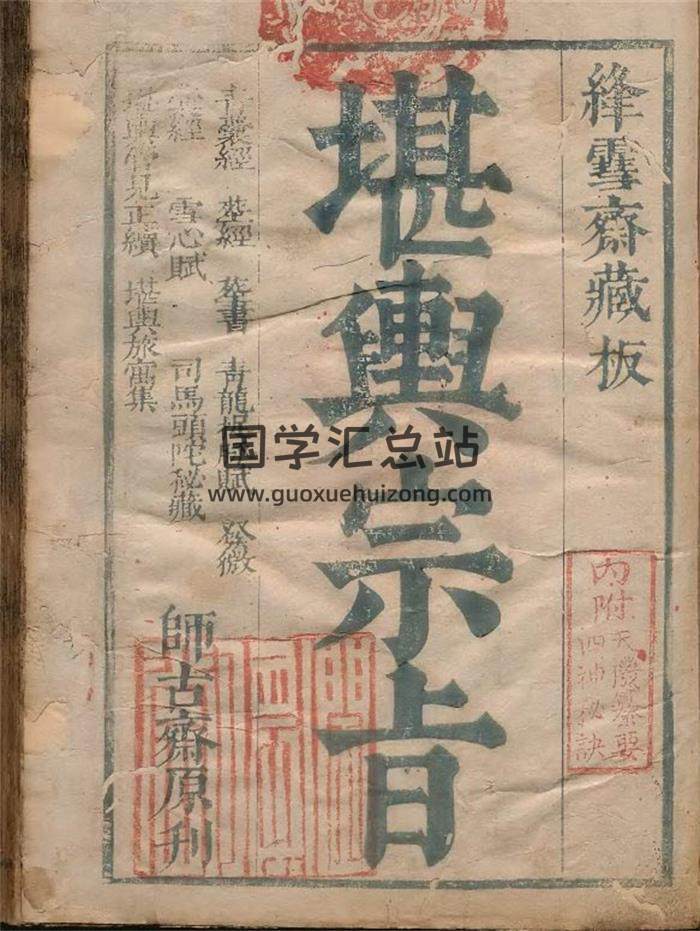 絳雪齋藏板
堪輿宗旨
青囊經 葬經 葬書 青龍 賦 發微
經 雪心賦 司馬頭陀秘藏
堪輿管見正續 堪輿旅寓集
師古齋原刊
內附天 要
四神秘訣
国学汇总站
www.guoxuehuizong.com